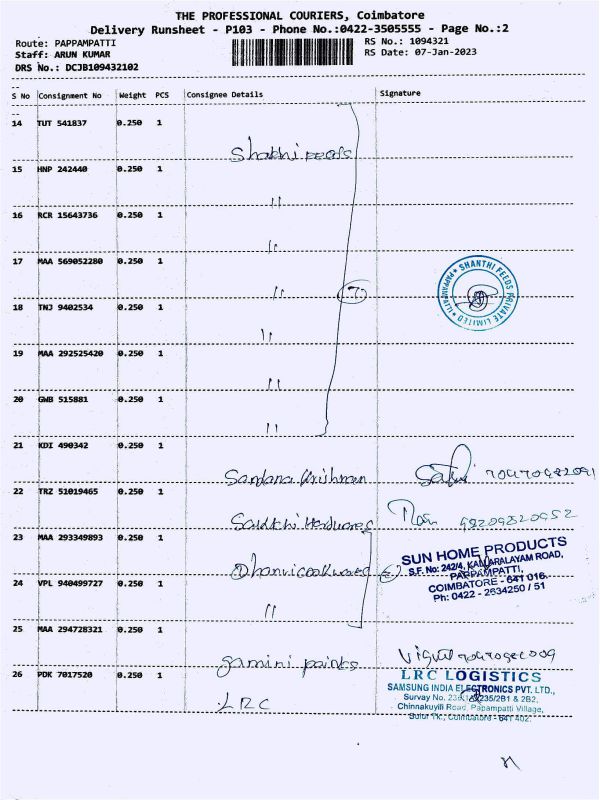 THE PROFESSIONAL COURIERS, Coimbatore
Delivery Runsheet - P103 - Phone No.:0422-3505555 - Page No.:2
Route: PAPPAMPATTI
Staff: ARUN KUMAR
DRS No.: DCJB109432102
RS No.: 1094321
RS Date: 07-Jan-2023
S No Consignment No Weight PCS Consignee Details Signature
14 TUT 541837 0.250 1
15 HNP 242440 0.250 1
" 
16 RCR 15643736 0.250 1
"
17 MAA 569052280 0.250 1
" 7
SHANTHI FEEDS PRIVATE LIMITED
PAPPAMPATTI
18 TNJ 9402534 0.250 1
"
19 MAA 292525420 0.250 1
"
20 GWB 515881 0.250 1
"
21 KDI 490342 0.250 1
22 TRZ 51019465 0.250 1
23 MAA 293349893 0.250 1
SUN HOME PRODUCTS
S.F. No: 242/4, KALLARALAYAM ROAD,
PAPPAMPATTI,
COIMBATORE - 641 016.
Ph: 0422 - 2634250 / 51
24 VPL 940499727 0.250 1
"
25 MAA 294728321 0.250 1
gamini paints
26 PDK 7017520 0.250 1
LRC
LRC LOGISTICS
SAMSUNG INDIA ELECTRONICS PVT. LTD.,
Survay No. 235/2B1 & 2B2,
Chinnakuyili Road, Papampatti Village,
Sulur Tk., Coimbatore - 641 402.